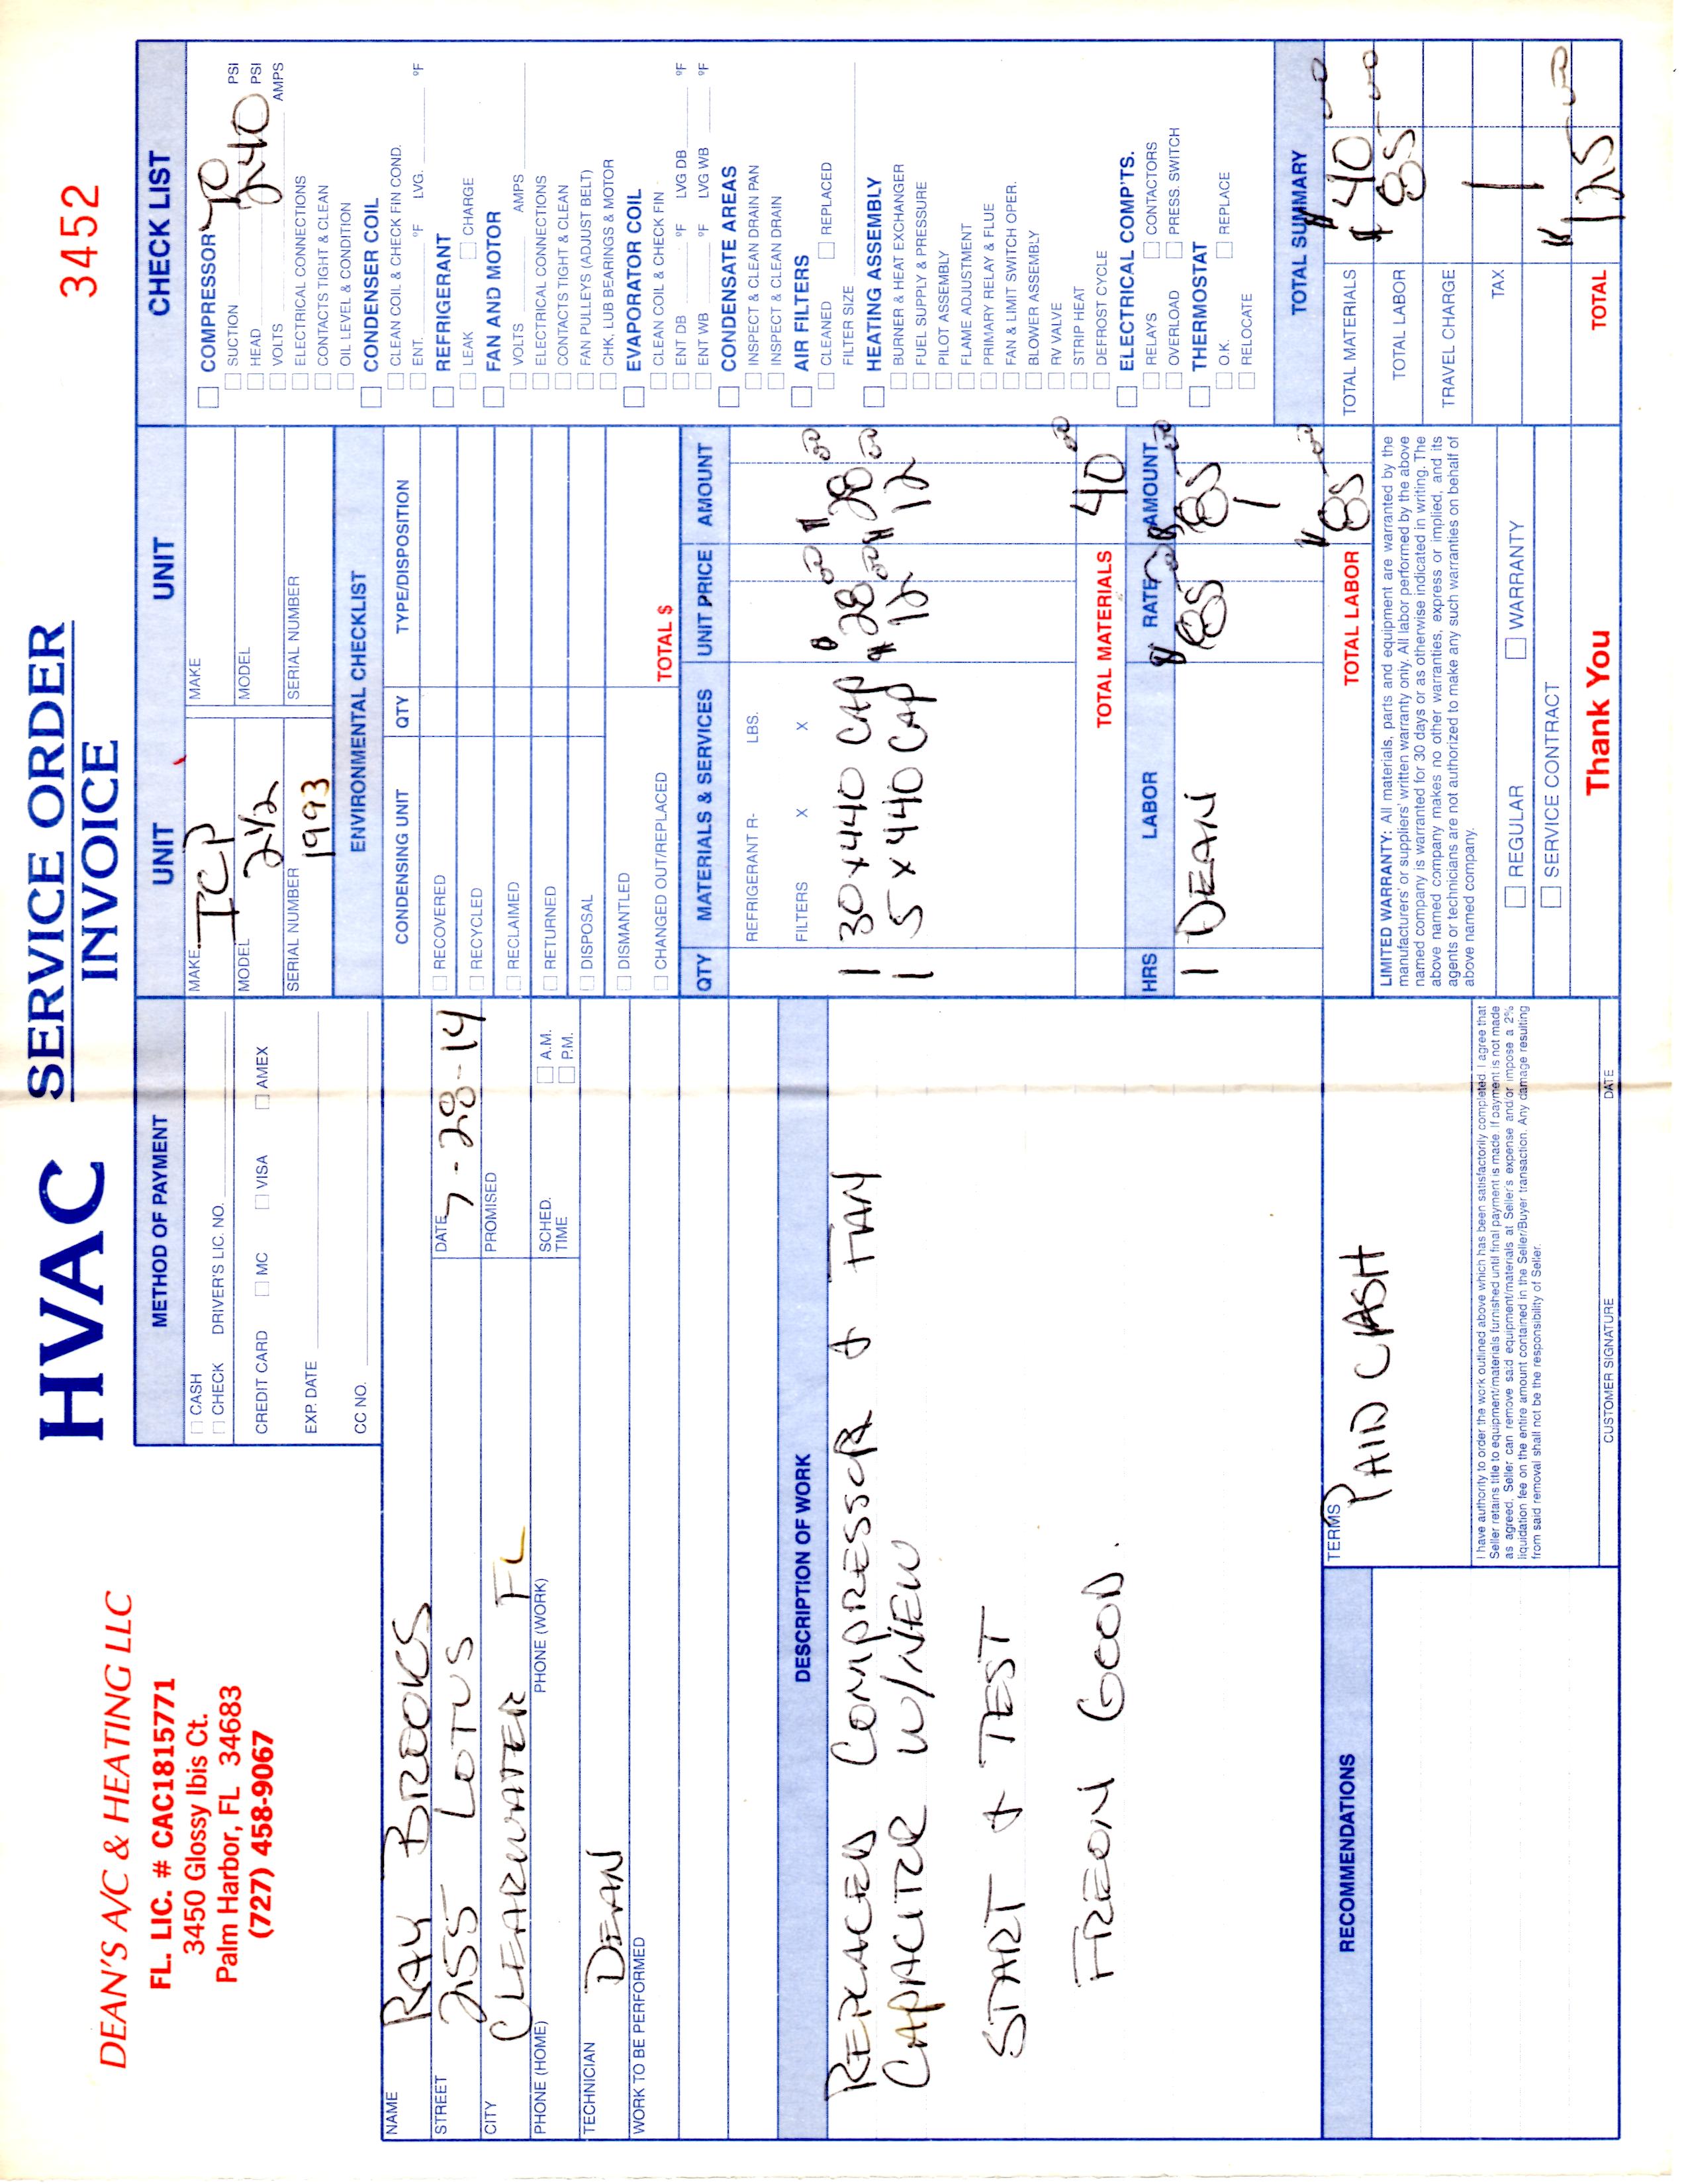 DEAN'S A/C & HEATING LLC
FL. LIC. # CAC1815771
3450 Glossy Ibis Ct.
Palm Harbor, FL 34683
(727) 458-9067
HVAC SERVICE ORDER INVOICE
3452
METHOD OF PAYMENT
CASH
CHECK DRIVER'S LIC. NO.
CREDIT CARD MC VISA AMEX
EXP. DATE
CC NO.
NAME RAY BROOKS
STREET 2155 LOTUS
DATE 7-28-14
CITY CLEARWATER FL
PROMISED
PHONE (HOME) PHONE (WORK)
SCHED. TIME A.M. P.M.
TECHNICIAN DEAN
WORK TO BE PERFORMED
DESCRIPTION OF WORK
REPLACED COMPRESSOR + FAN
CAPACITOR W/NEW
START + TEST
FREON GOOD.
RECOMMENDATIONS
TERMS PAID CASH
I have authority to order the work outlined above which has been satisfactorily completed. I agree that
Seller retains title to equipment/materials furnished until final payment is made. If payment is not made
as agreed, Seller can remove said equipment/materials at Seller's expense and/or impose a 2%
liquidation fee on the entire amount contained in the Seller/Buyer transaction. Any damage resulting
from said removal shall not be the responsibility of Seller.
CUSTOMER SIGNATURE DATE
UNIT UNIT
MAKE ICP MAKE
MODEL 2 1/2 MODEL
SERIAL NUMBER 1993 SERIAL NUMBER
ENVIRONMENTAL CHECKLIST
CONDENSING UNIT QTY TYPE/DISPOSITION
RECOVERED
RECYCLED
RECLAIMED
RETURNED
DISPOSAL
DISMANTLED
CHANGED OUT/REPLACED TOTAL $
QTY MATERIALS & SERVICES UNIT PRICE AMOUNT
REFRIGERANT R- LBS.
FILTERS X X
1 30x440 CAP $28 00 $28 00
1 5x440 CAP $12 00 $12 00
TOTAL MATERIALS 40 00
HRS LABOR RATE AMOUNT
1 DEAN $85 00 $85 00
TOTAL LABOR $85 00
LIMITED WARRANTY: All materials, parts and equipment are warranted by the
manufacturers' or suppliers' written warranty only. All labor performed by the above
named company is warranted for 30 days or as otherwise indicated in writing. The
above named company makes no other warranties, express or implied, and its
agents or technicians are not authorized to make any such warranties on behalf of
above named company.
REGULAR WARRANTY
SERVICE CONTRACT
Thank You
CHECK LIST
COMPRESSOR
SUCTION 70 PSI
HEAD 240 PSI
VOLTS AMPS
ELECTRICAL CONNECTIONS
CONTACTS TIGHT & CLEAN
OIL LEVEL & CONDITION
CONDENSER COIL
CLEAN COIL & CHECK FIN COND.
ENT. °F LVG. °F
REFRIGERANT
LEAK CHARGE
FAN AND MOTOR
VOLTS AMPS
ELECTRICAL CONNECTIONS
CONTACTS TIGHT & CLEAN
FAN PULLEYS (ADJUST BELT)
CHK. LUB BEARINGS & MOTOR
EVAPORATOR COIL
CLEAN COIL & CHECK FIN
ENT DB °F LVG DB °F
ENT WB °F LVG WB °F
CONDENSATE AREAS
INSPECT & CLEAN DRAIN PAN
INSPECT & CLEAN DRAIN
AIR FILTERS
CLEANED REPLACED
FILTER SIZE
HEATING ASSEMBLY
BURNER & HEAT EXCHANGER
FUEL SUPPLY & PRESSURE
PILOT ASSEMBLY
FLAME ADJUSTMENT
PRIMARY RELAY & FLUE
FAN & LIMIT SWITCH OPER.
BLOWER ASSEMBLY
RV VALVE
STRIP HEAT
DEFROST CYCLE
ELECTRICAL COMP'TS.
RELAYS CONTACTORS
OVERLOAD PRESS. SWITCH
THERMOSTAT
O.K. REPLACE
RELOCATE
TOTAL SUMMARY
TOTAL MATERIALS $40 00
TOTAL LABOR $85 00
TRAVEL CHARGE
TAX
TOTAL $125 00